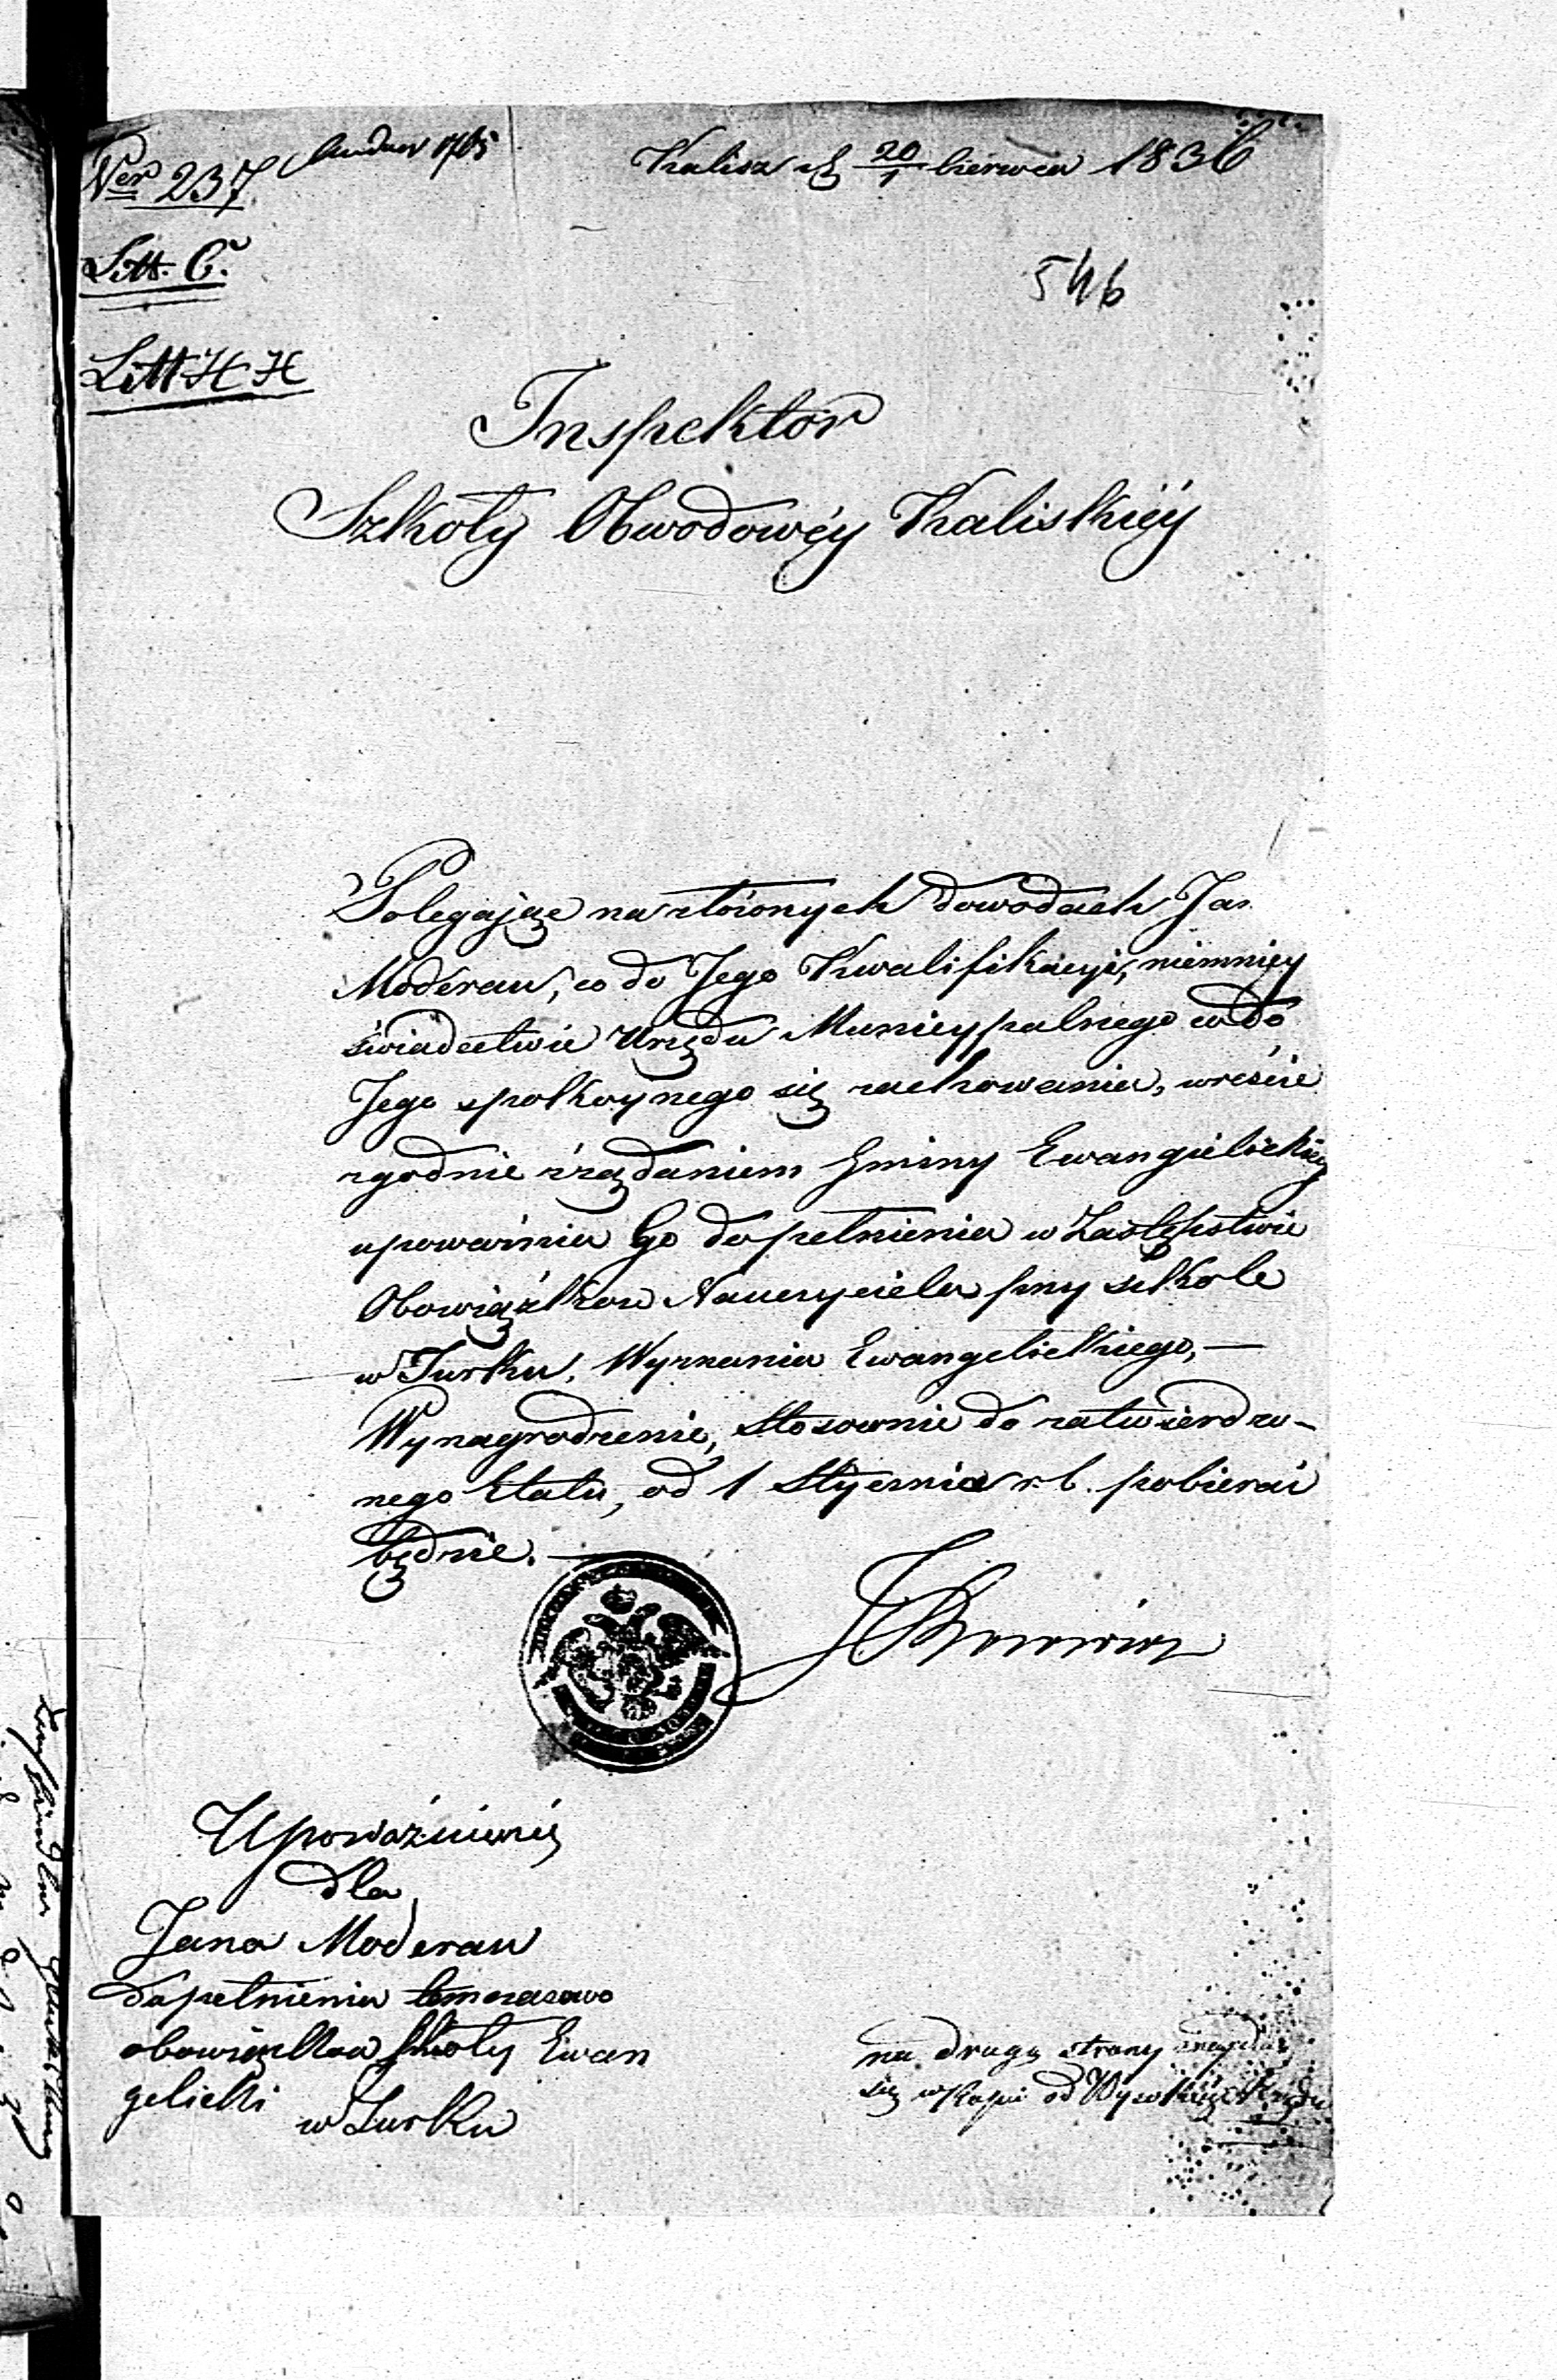 Ner 237
Kalisz d. 20/1 Czerwca 1836
Litt. C.
546
Litt H H
Inspektor
Szkoły Obwodowéy Kaliskiéy
Polegając na złożonych dowodach Jan
Moderau, co do Jego Kwalifikacyi, niemniéy
świadectwie Urzędu Municypalnego co do
Jego spokoynego się zachowania, wreście
zgodnie z żądaniem Gminy Ewangielickiéy
upoważnia Go do pełnienia w Zastępstwie
Obowiązkow Nauczyciela przy szkole
w Turku, Wyznania Ewangelickiego, —
Wynagrodzenie, stosownie do zatwierdzo-
nego Etatu, od 1 Stycznia r. b. pobierać
będzie. —
Upoważnienie
dla
Jana Moderau
do pełnienia tymczasowo
obowiązków szkoły Ewan
gelicki
w Turku
na drugiy strony znayduie
się w kopii od Wysokiéy Rządu